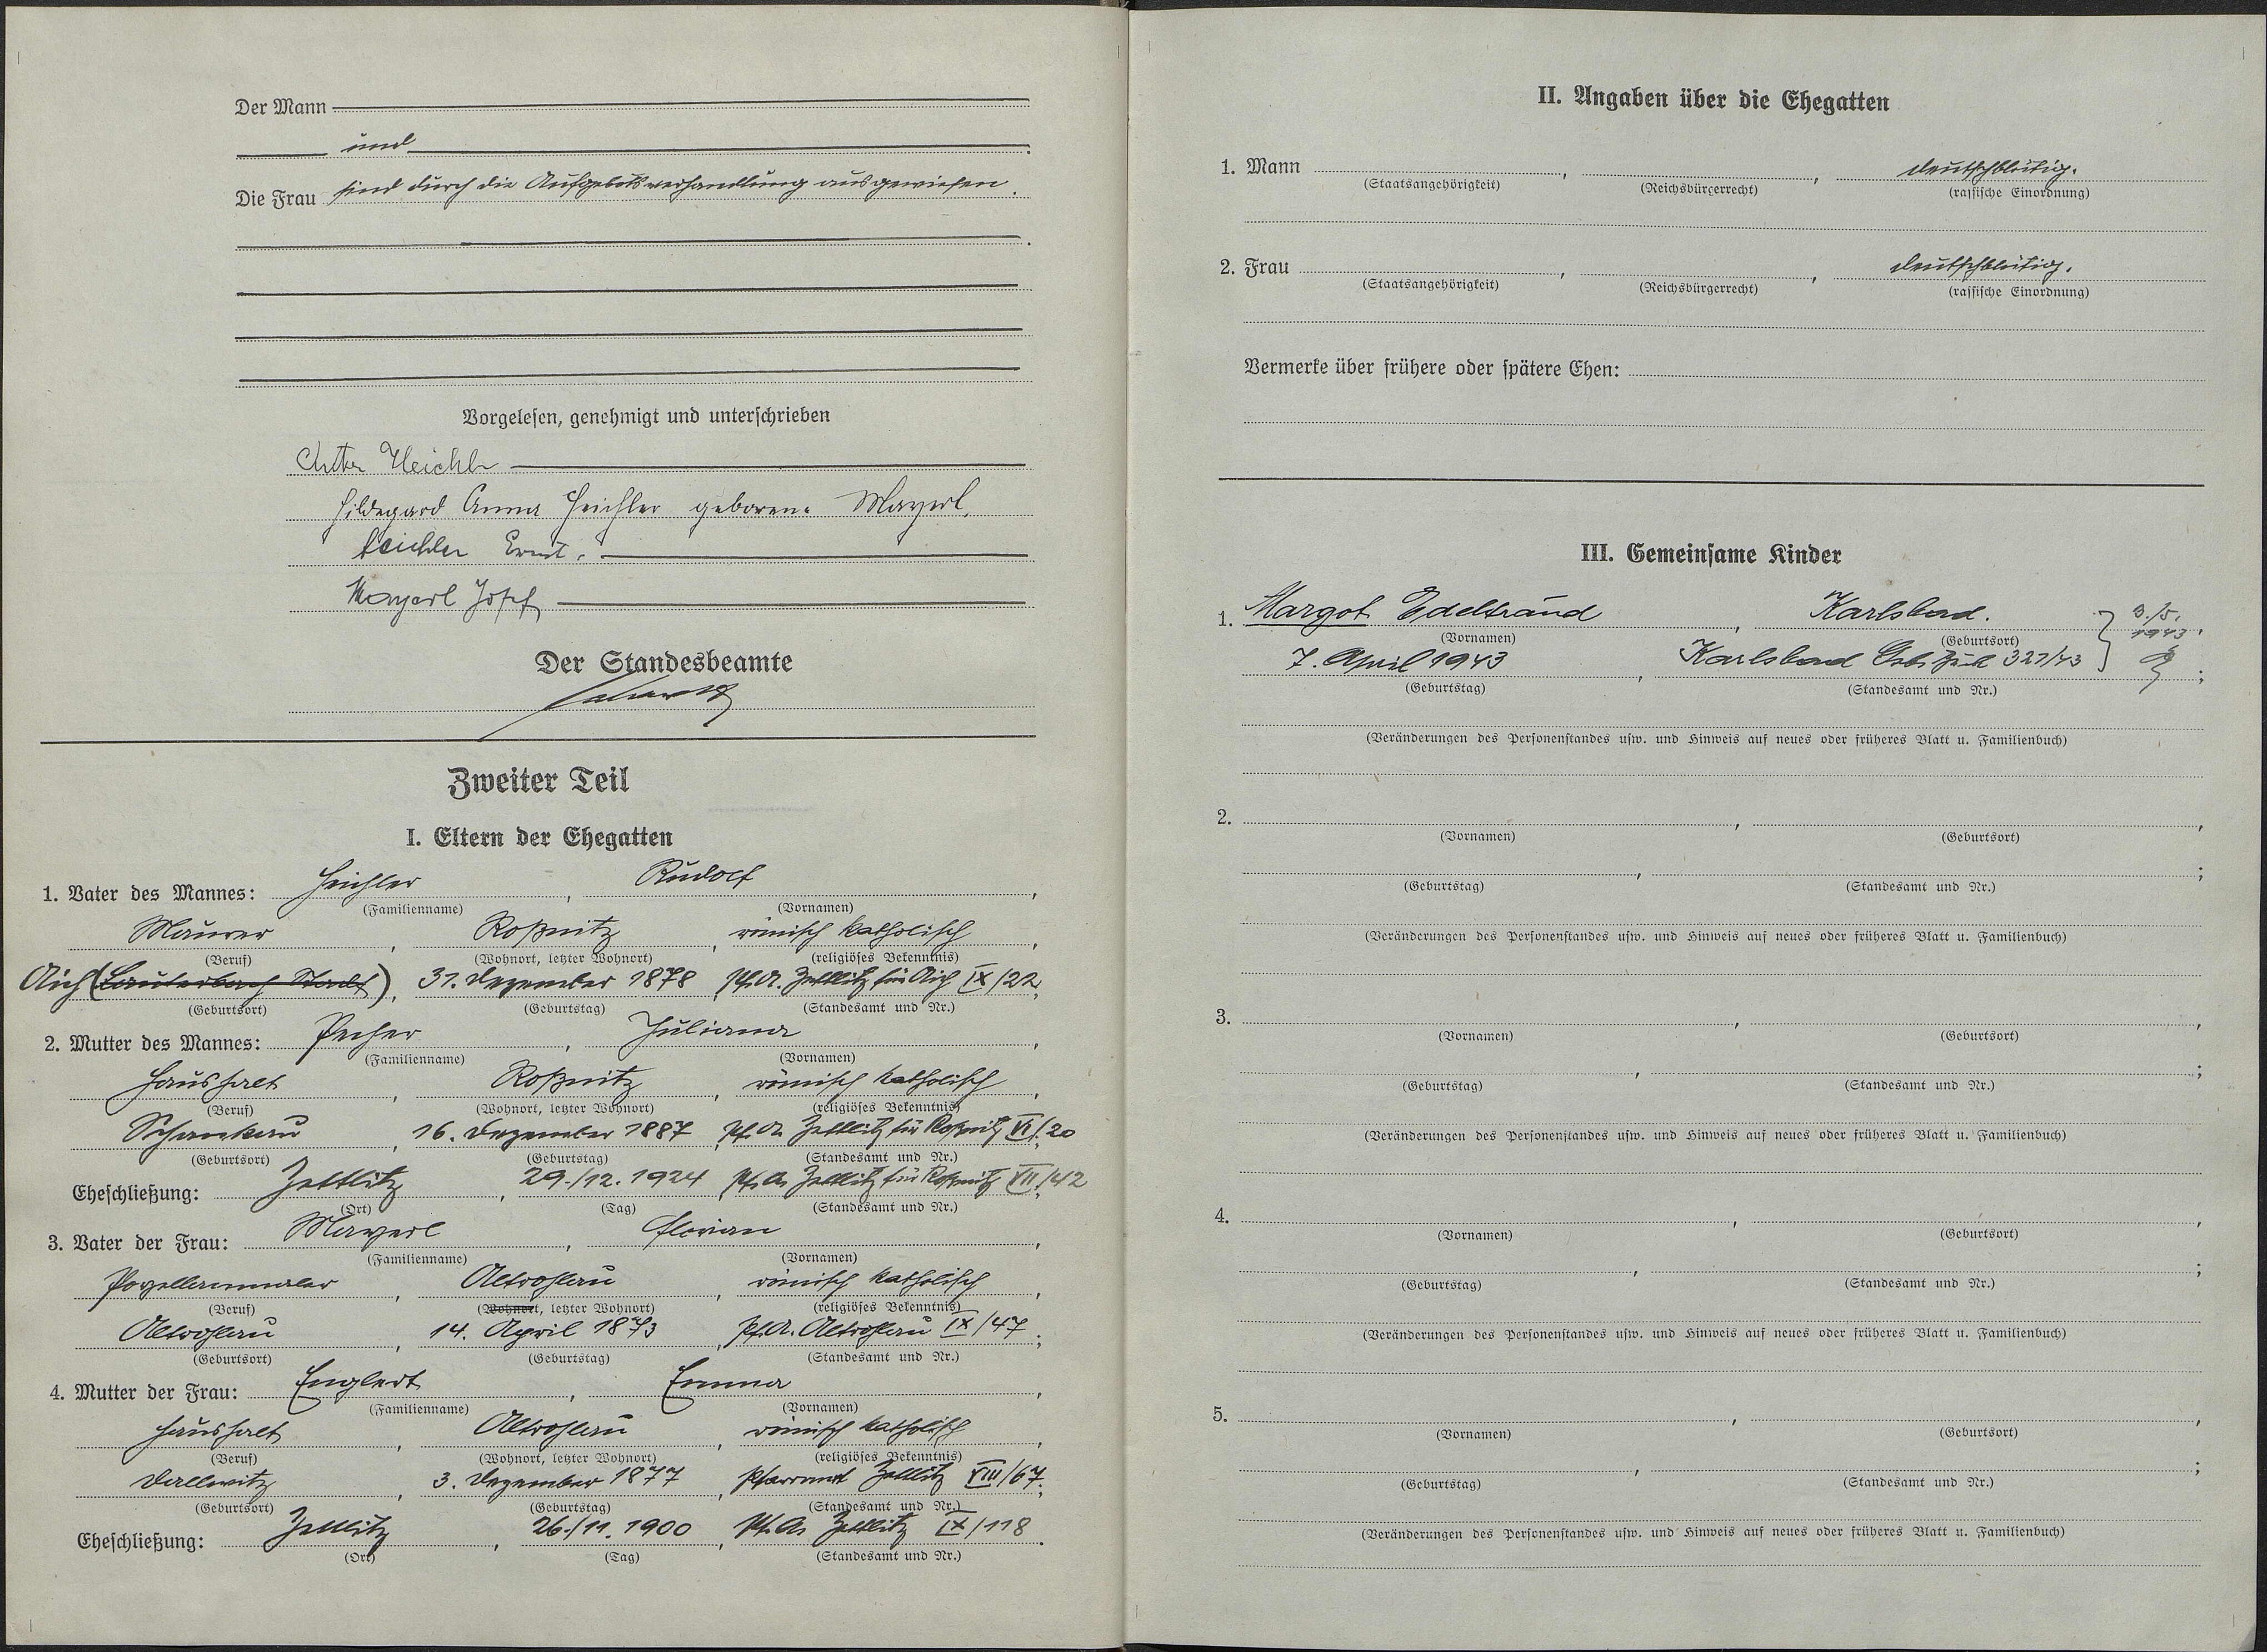 Der Mann
und
Die Frau sind durch die Aufgebotsverhandlung ausgewiesen.
Vorgelesen, genehmigt und unterschrieben
Anton Heichler
Hildegard Anna Heichler geborene Mayerl.
Heichler Ernst.
Mayerl Josef
Der Standesbeamte
Zweiter Teil
I. Eltern der Ehegatten
1. Vater des Mannes: Heichler, Rudolf,
(Familienname) (Vornamen)
Maurer, Roßnitz, römisch katholisch,
(Beruf) (Wohnort, letzter Wohnort) (religiöses Bekenntnis)
Aich (Lauterbach Stadt), 31. Dezember 1878, Pf. A. Zettlitz für Aich IX/22;
(Geburtsort) (Geburtstag) (Standesamt und Nr.)
2. Mutter des Mannes: Pecher, Juliana,
(Familienname) (Vornamen)
Haushalt, Roßnitz, römisch katholisch,
(Beruf) (Wohnort, letzter Wohnort) (religiöses Bekenntnis)
Schankau, 16. Dezember 1887, Pf. A. Zettlitz für Roßnitz VI/20
(Geburtsort) (Geburtstag) (Standesamt und Nr.)
Eheschließung: Zettlitz, 29./12. 1924, Pf. A. Zettlitz für Roßnitz VII/42
(Ort) (Tag) (Standesamt und Nr.)
3. Vater der Frau: Mayerl, Florian,
(Familienname) (Vornamen)
Porzellanmaler, Altrohlau, römisch katholisch,
(Beruf) (Wohnort, letzter Wohnort) (religiöses Bekenntnis)
Altrohlau, 14. April 1873, Pf. A. Altrohlau IX/47;
(Geburtsort) (Geburtstag) (Standesamt und Nr.)
4. Mutter der Frau: Englert, Emma,
(Familienname) (Vornamen)
Haushalt, Altrohlau, römisch katholisch,
(Beruf) (Wohnort, letzter Wohnort) (religiöses Bekenntnis)
Dallwitz, 3. Dezember 1877, Pfarramt Zettlitz VIII/67;
(Geburtsort) (Geburtstag) (Standesamt und Nr.)
Eheschließung: Zettlitz, 26./11. 1900, Pf. A. Zettlitz IX/118.
(Ort) (Tag) (Standesamt und Nr.)
II. Angaben über die Ehegatten
1. Mann , , deutschblütig.
(Staatsangehörigkeit) (Reichsbürgerrecht) (rassische Einordnung)
2. Frau , , deutschblütig.
(Staatsangehörigkeit) (Reichsbürgerrecht) (rassische Einordnung)
Vermerke über frühere oder spätere Ehen:
III. Gemeinsame Kinder
1. Margot Edeltraud, Karlsbad. 3./5. 1943.
(Vornamen) (Geburtsort)
7. April 1943, Karlsbad 321/43;
(Geburtstag) (Standesamt und Nr.)
(Veränderungen des Personenstandes usw. und Hinweis auf neues oder früheres Blatt u. Familienbuch)
2. , ,
(Vornamen) (Geburtsort)
, ;
(Geburtstag) (Standesamt und Nr.)
(Veränderungen des Personenstandes usw. und Hinweis auf neues oder früheres Blatt u. Familienbuch)
3. , ,
(Vornamen) (Geburtsort)
, ;
(Geburtstag) (Standesamt und Nr.)
(Veränderungen des Personenstandes usw. und Hinweis auf neues oder früheres Blatt u. Familienbuch)
4. , ,
(Vornamen) (Geburtsort)
, ;
(Geburtstag) (Standesamt und Nr.)
(Veränderungen des Personenstandes usw. und Hinweis auf neues oder früheres Blatt u. Familienbuch)
5. , ,
(Vornamen) (Geburtsort)
, ;
(Geburtstag) (Standesamt und Nr.)
(Veränderungen des Personenstandes usw. und Hinweis auf neues oder früheres Blatt u. Familienbuch)